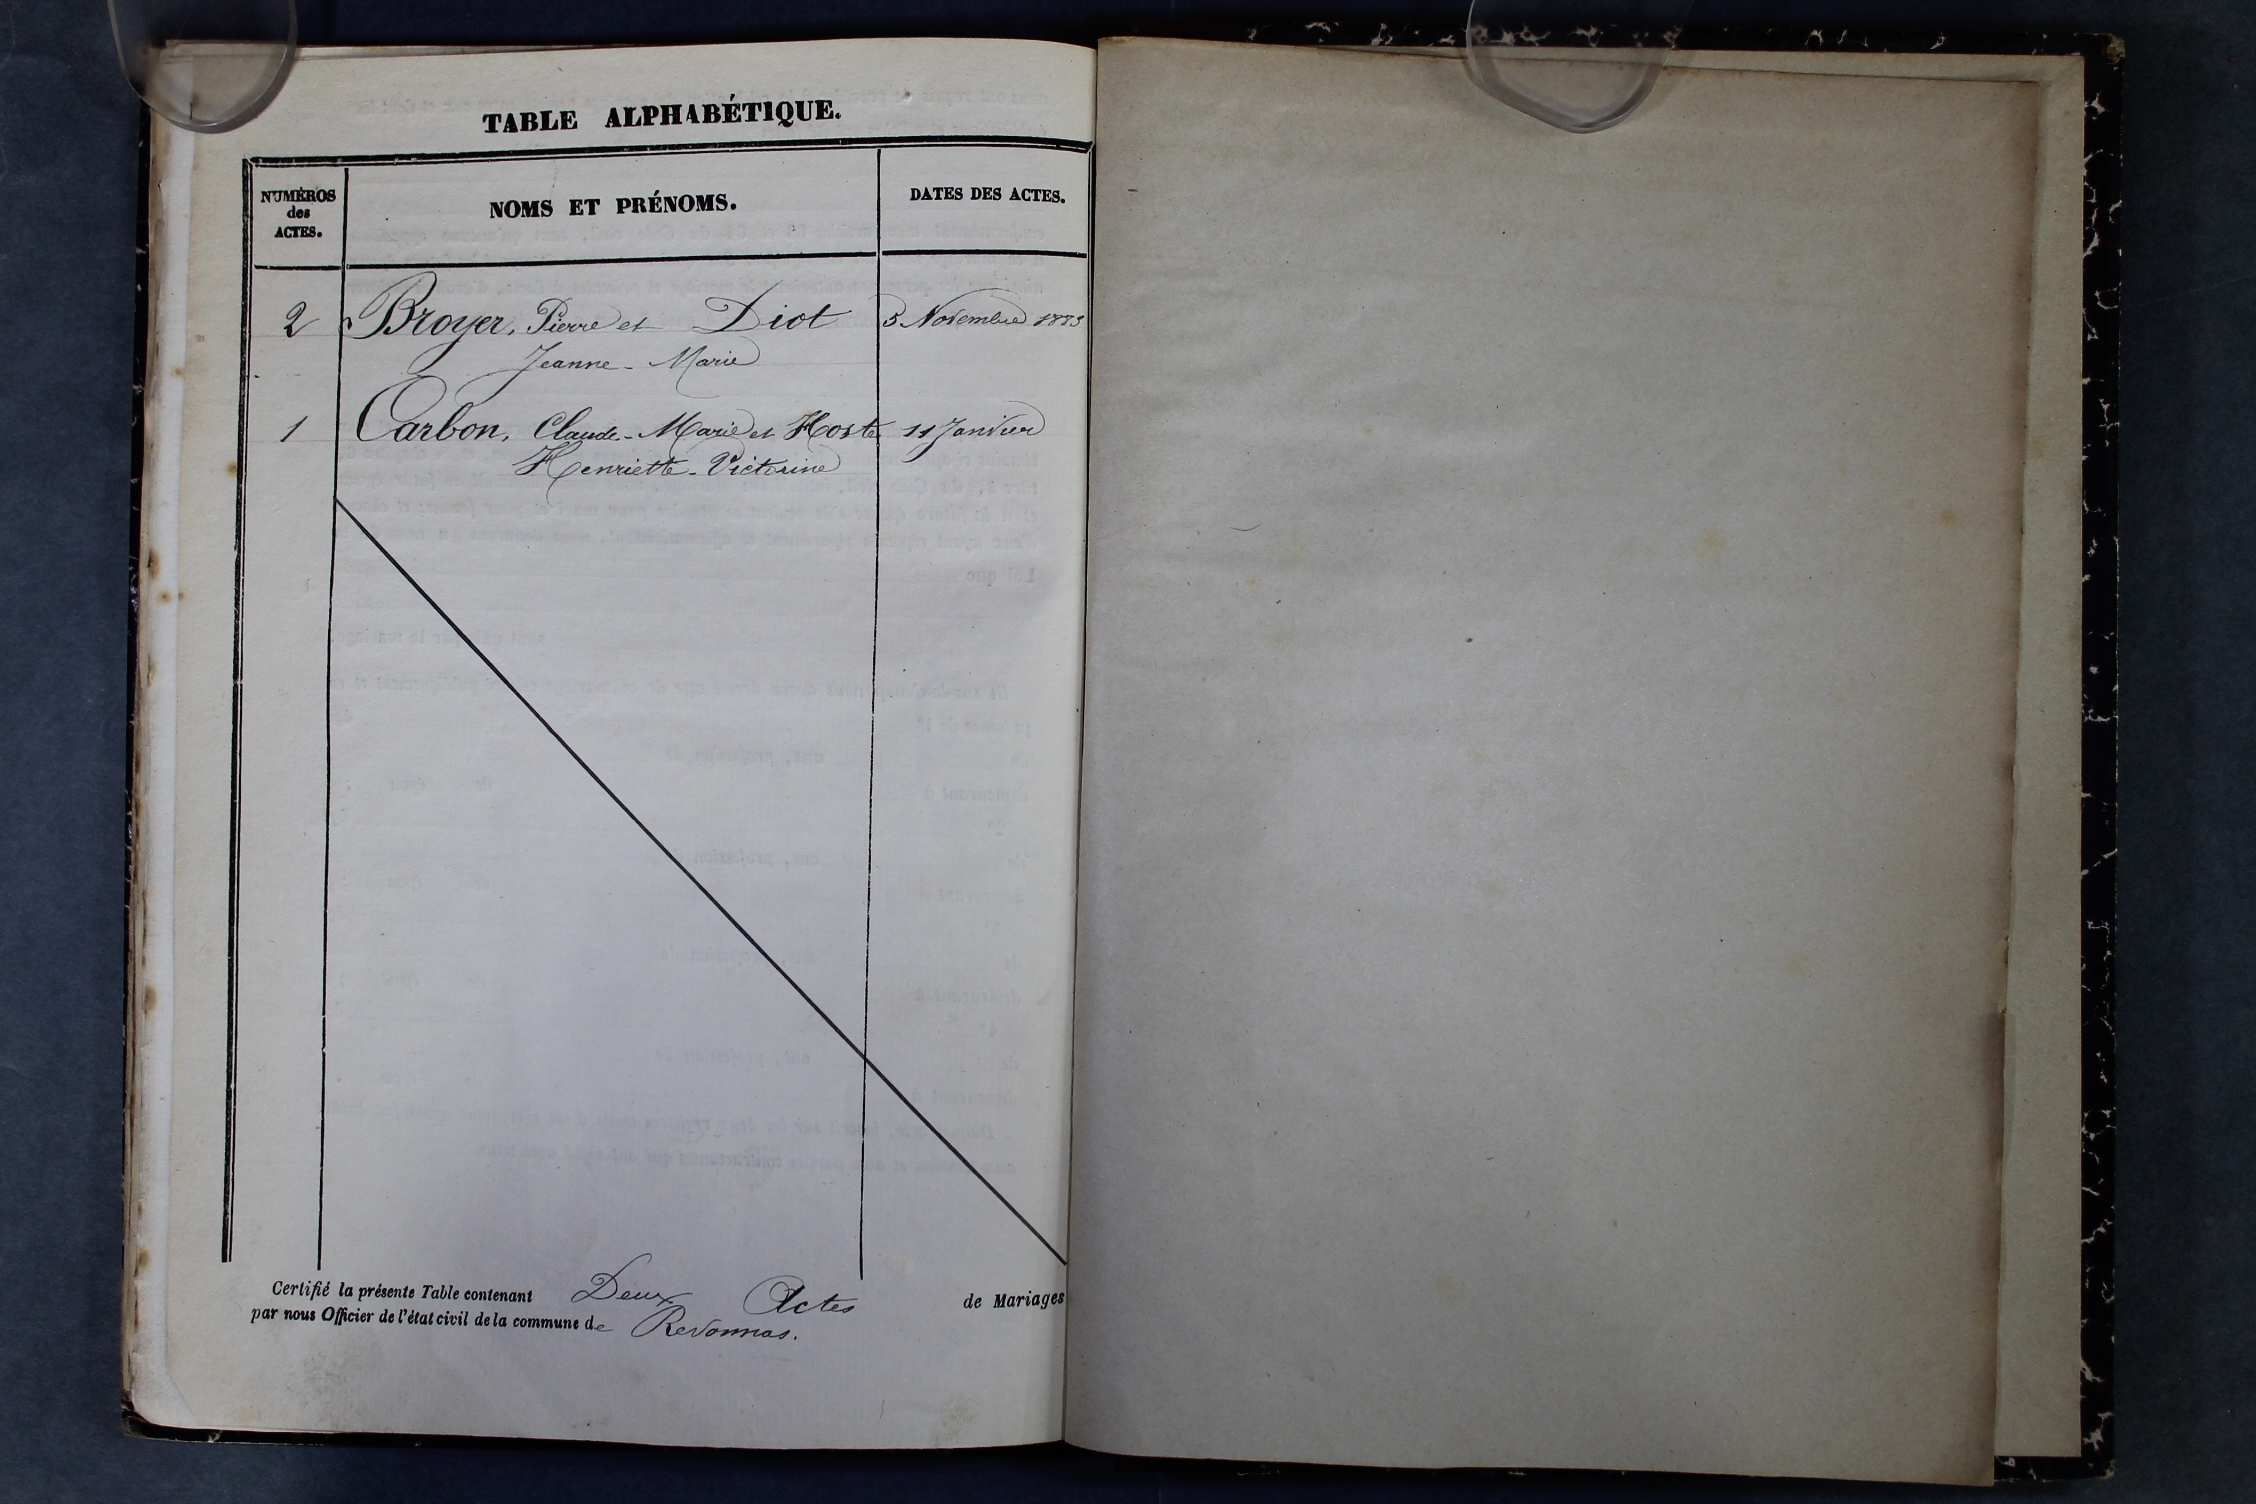 TABLE ALPHABÉTIQUE.
NUMÉROS
des
ACTES.
NOMS ET PRÉNOMS.
DATES DES ACTES.
2 Broyer, Pierre et Diot 5 Novembre 1883
Jeanne-Marie
1 Carbon, Claude-Marie et Hoste 11 Janvier
Henriette-Victorine
Certifié la présente Table contenant Deux Actes de Mariages
par nous Officier de l'état civil de la commune de Revonnas.